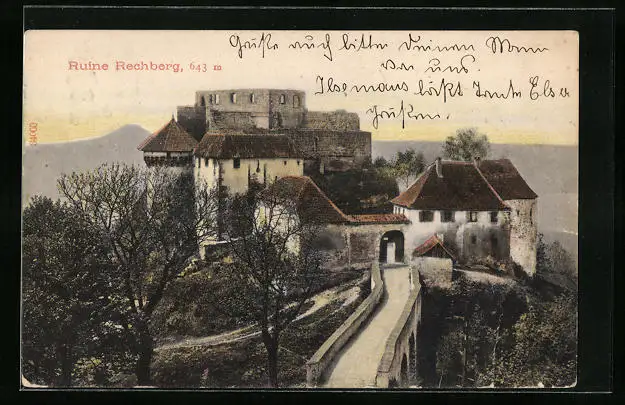 Ruine Rechberg, 643 m
Grüße auch bitte Deinen Mann
von uns.
Ilsemaus läßt Tante Elsa
grüßen.